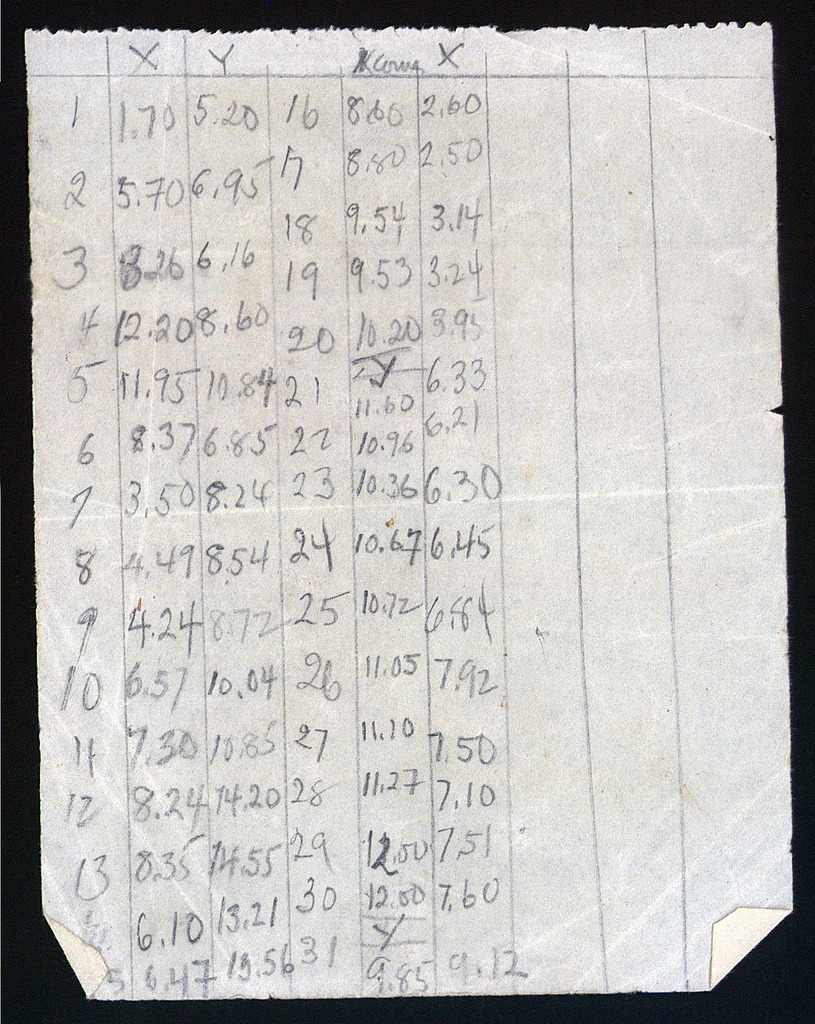 X Y X
1 1.70 5.20 16 8.60 2.60
2 5.70 6.95 17 8.80 2.50
18 9.54 3.14
3 8.26 6.16 19 9.53 3.24
4 12.20 8.60 20 10.20 3.95
Y
5 11.95 10.84 21 11.60 6.33
6 8.37 6.85 22 10.96 6.21
7 3.50 8.24 23 10.36 6.30
8 4.49 8.54 24 10.67 6.45
9 4.24 8.72 25 10.72 6.84
10 6.57 10.04 26 11.05 7.92
11 7.30 10.85 27 11.10 7.50
12 8.24 14.20 28 11.27 7.10
13 8.35 14.55 29 12.00 7.51
6.10 13.21 30 12.00 7.60
Y
5 6.47 13.56 31 9.85 9.12